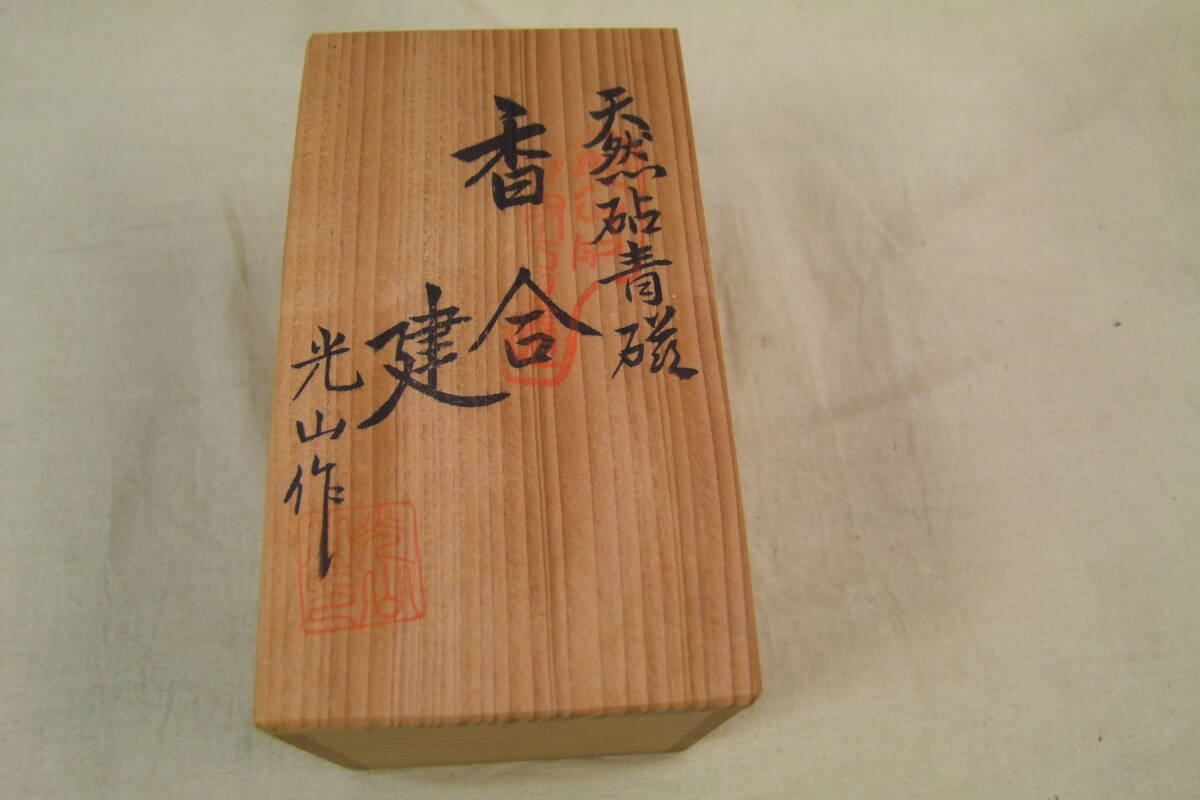 天然砧青磁
香合
建
光山作